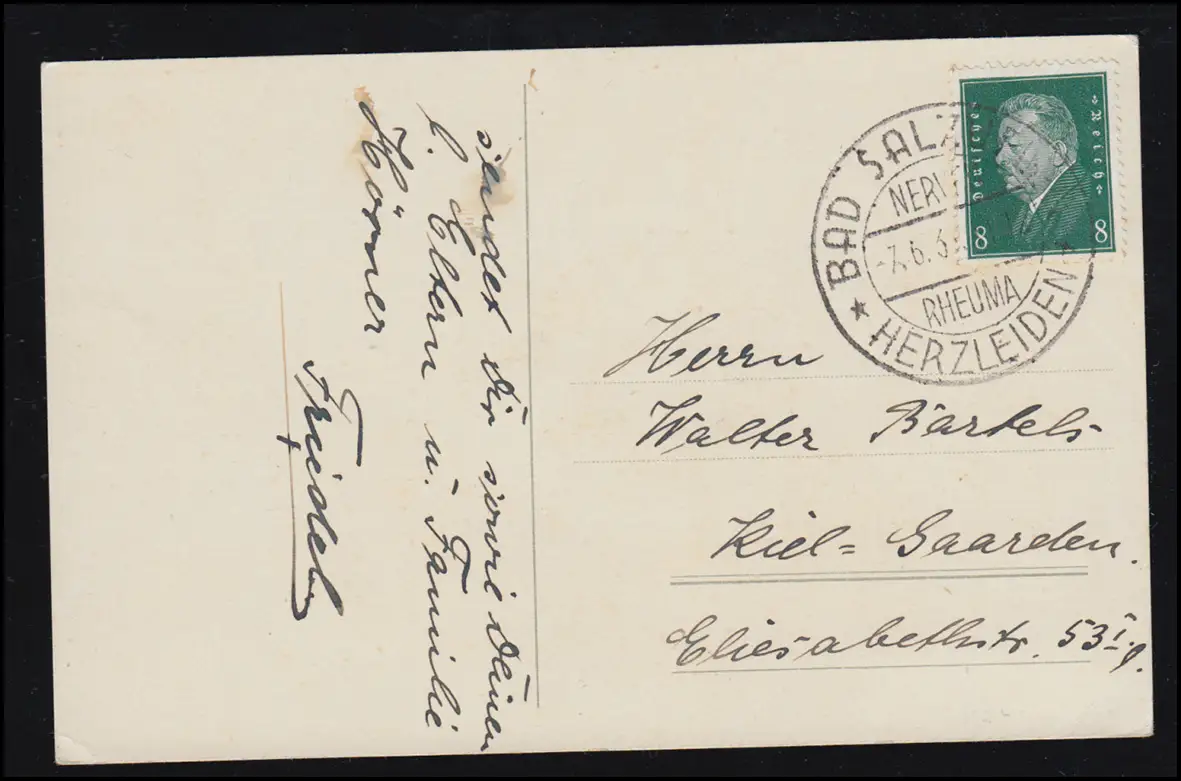 sendet Dir sowie Deinen
l. Eltern u. Familie
Hörner
Deutsches Reich
8 8
BAD SALZ
NERV
7.6.3
RHEUMA
* HERZLEIDEN *
Herrn
Walter Bartels
Kiel= Gaarden.
Eliesabethstr. 53 I